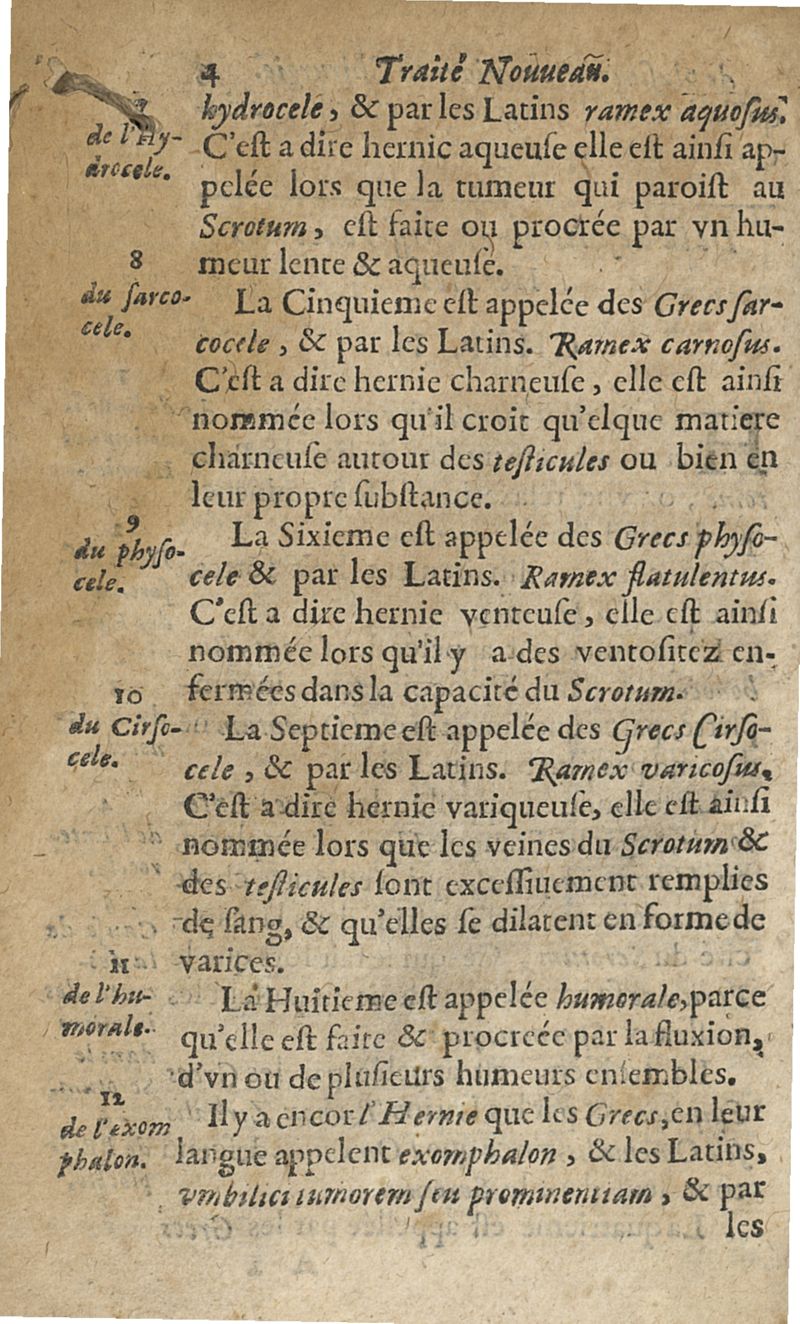 4 Traité Nouueau.
7
de l'Hy-
drocele.
hydrocele, & par les Latins ramex aquoſus.
C'eſt a dire hernie aqueuſe elle eſt ainſi ap-
pelée lors que la tumeur qui paroiſt au
Scrotum, eſt faite ou procrée par vn hu-
meur lente & aqueuſe.
8
du ſarco-
cele.
La Cinquieme eſt appelée des Grecs ſar-
cocele, & par les Latins. Ramex carnoſus.
C'eſt a dire hernie charneuſe, elle eſt ainſi
nommée lors qu'il croit qu'elque matiere
charneuſe autour des teſticules ou bien en
leur propre ſubſtance.
9
du phyſo-
cele.
La Sixieme eſt appelée des Grecs phyſo-
cele & par les Latins. Ramex flatulentus.
C'eſt a dire hernie venteuſe, elle eſt ainſi
nommée lors qu'il y a des ventoſitez en-
fermées dans la capacité du Scrotum.
10
du Cirſo-
cele.
La Septieme eſt appelée des Grecs Cirſo-
cele, & par les Latins. Ramex varicoſus.
C'eſt a dire hernie variqueuſe, elle eſt ainſi
nommée lors que les veines du Scrotum &
des teſticules ſont exceſſiuement remplies
de ſang, & qu'elles ſe dilatent en forme de
varices.
11
de l'hu-
morale.
La Huitieme eſt appelée humorale, parce
qu'elle eſt faite & procreée par la fluxion,
d'vn ou de pluſieurs humeurs enſembles.
12
de l'exom
phalon.
Il y a encor l'Hernie que les Grecs, en leur
langue appelent exomphalon, & les Latins,
vmbilici tumorem ſeu prominentiam, & par
les